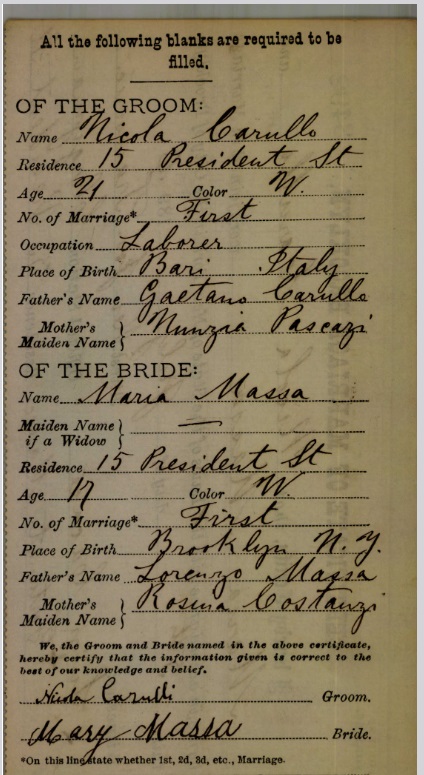 All the following blanks are required to be
filled.
OF THE GROOM:
Name Nicola Carullo
Residence 15 President St
Age 21 Color W.
No. of Marriage* First
Occupation Laborer
Place of Birth Bari Italy
Father's Name Gaetano Carullo
Mother's
Maiden Name } Nunzia Pascazi
OF THE BRIDE:
Name Maria Massa
Maiden Name
if a Widow } —
Residence 15 President St
Age 17 Color W.
No. of Marriage* First
Place of Birth Brooklyn N.Y.
Father's Name Lorenzo Massa
Mother's
Maiden Name } Rosina Costanzi
We, the Groom and Bride named in the above certificate,
hereby certify that the information given is correct to the
best of our knowledge and belief.
Nicola Carulli Groom.
Mary Massa Bride.
*On this line state whether 1st, 2d, 3d, etc., Marriage.